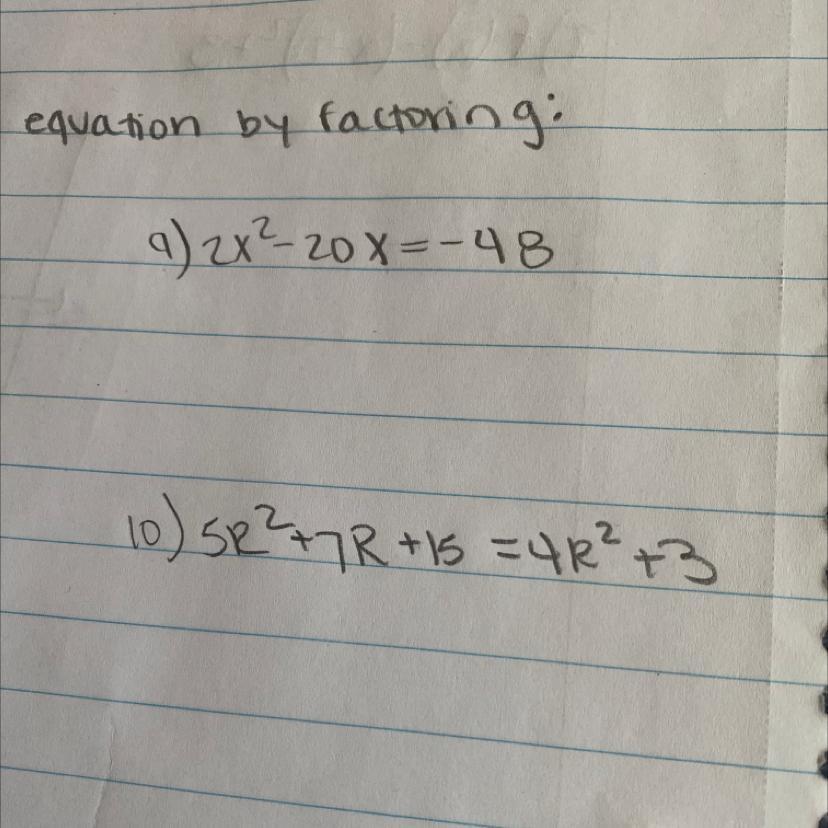 equation by factoring:
9) 2x²-20x=-48
10) 5R²+7R+15 =4R²+3